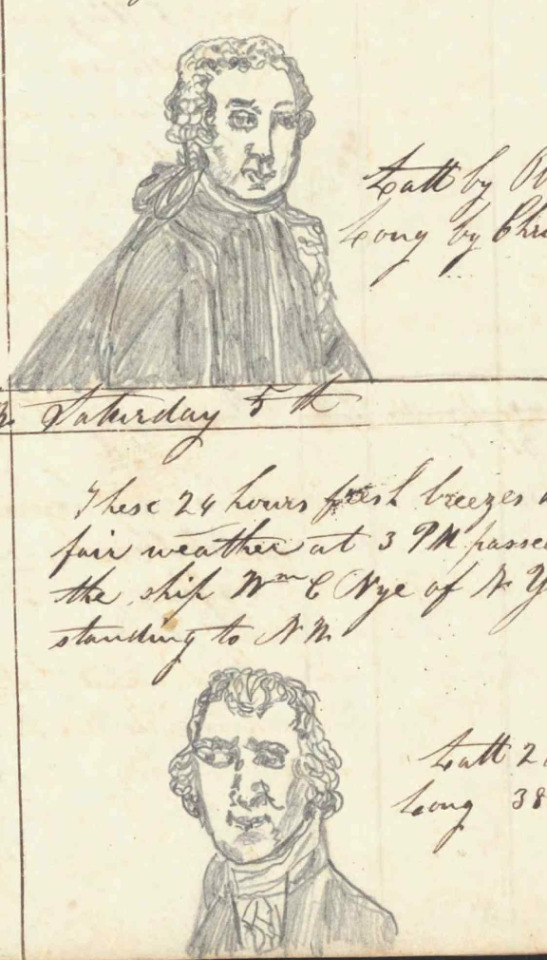 Latt by
Long by
Saturday 5th
These 24 hours fresh breezes
fair weather at 3 PM passe
the ship Wm C Nye of N Y
standing to
Latt 2
Long 38